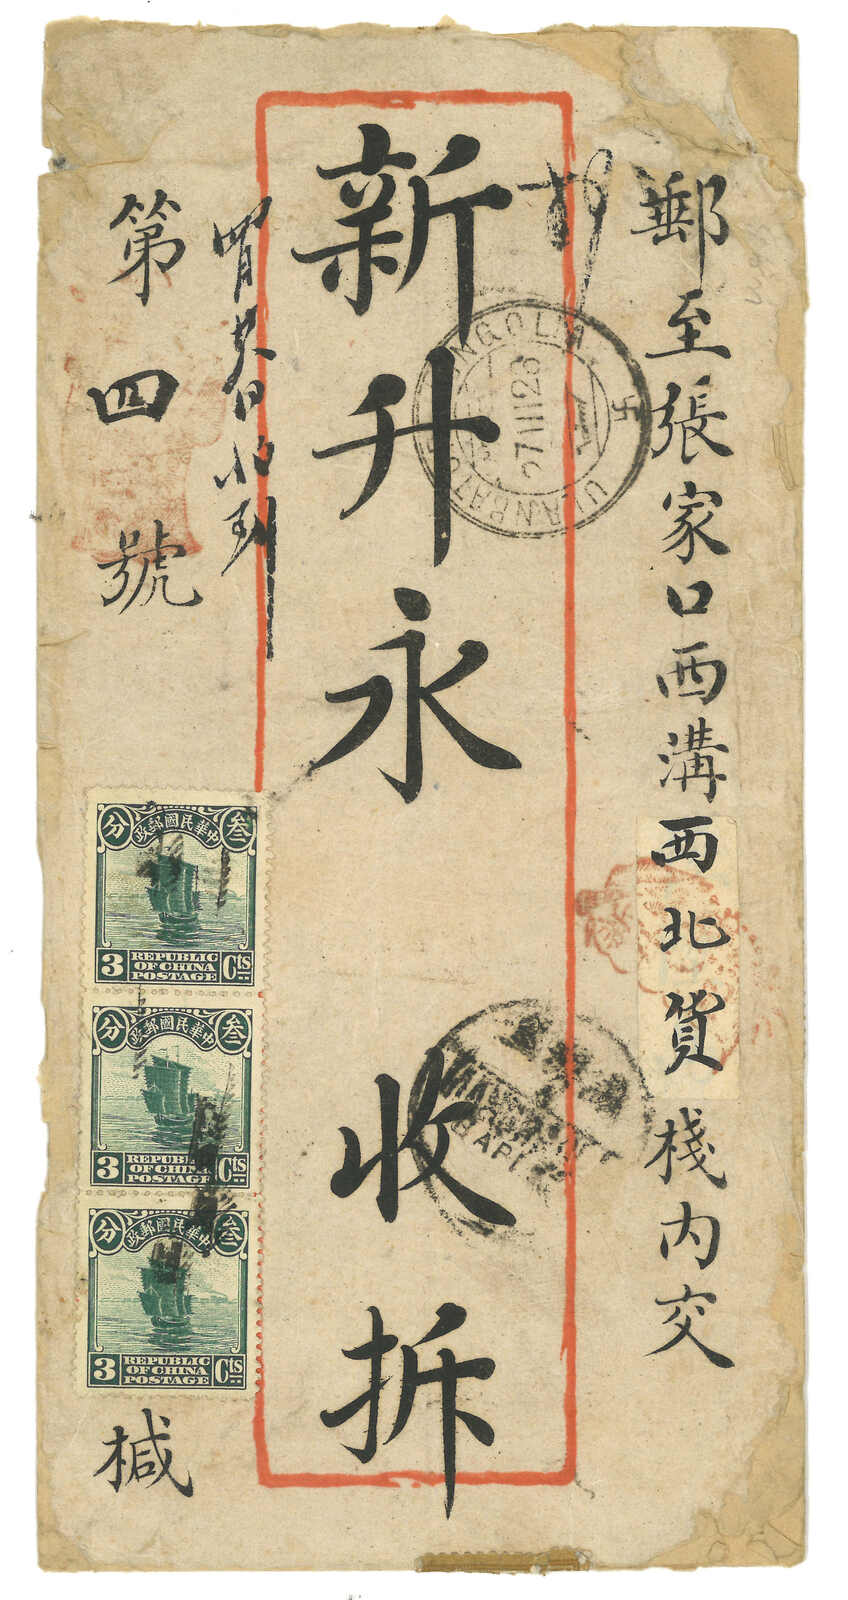 郵至張家口西溝西北貨棧内交
新升永 收拆
第四號
椷
ULANBATOR MONGOLIA
27 III 26
卐
中華民國郵政
叁 分
REPUBLIC
OF CHINA
POSTAGE
3 Cts
中華民國郵政
叁 分
REPUBLIC
OF CHINA
POSTAGE
3 Cts
中華民國郵政
叁 分
REPUBLIC
OF CHINA
POSTAGE
3 Cts